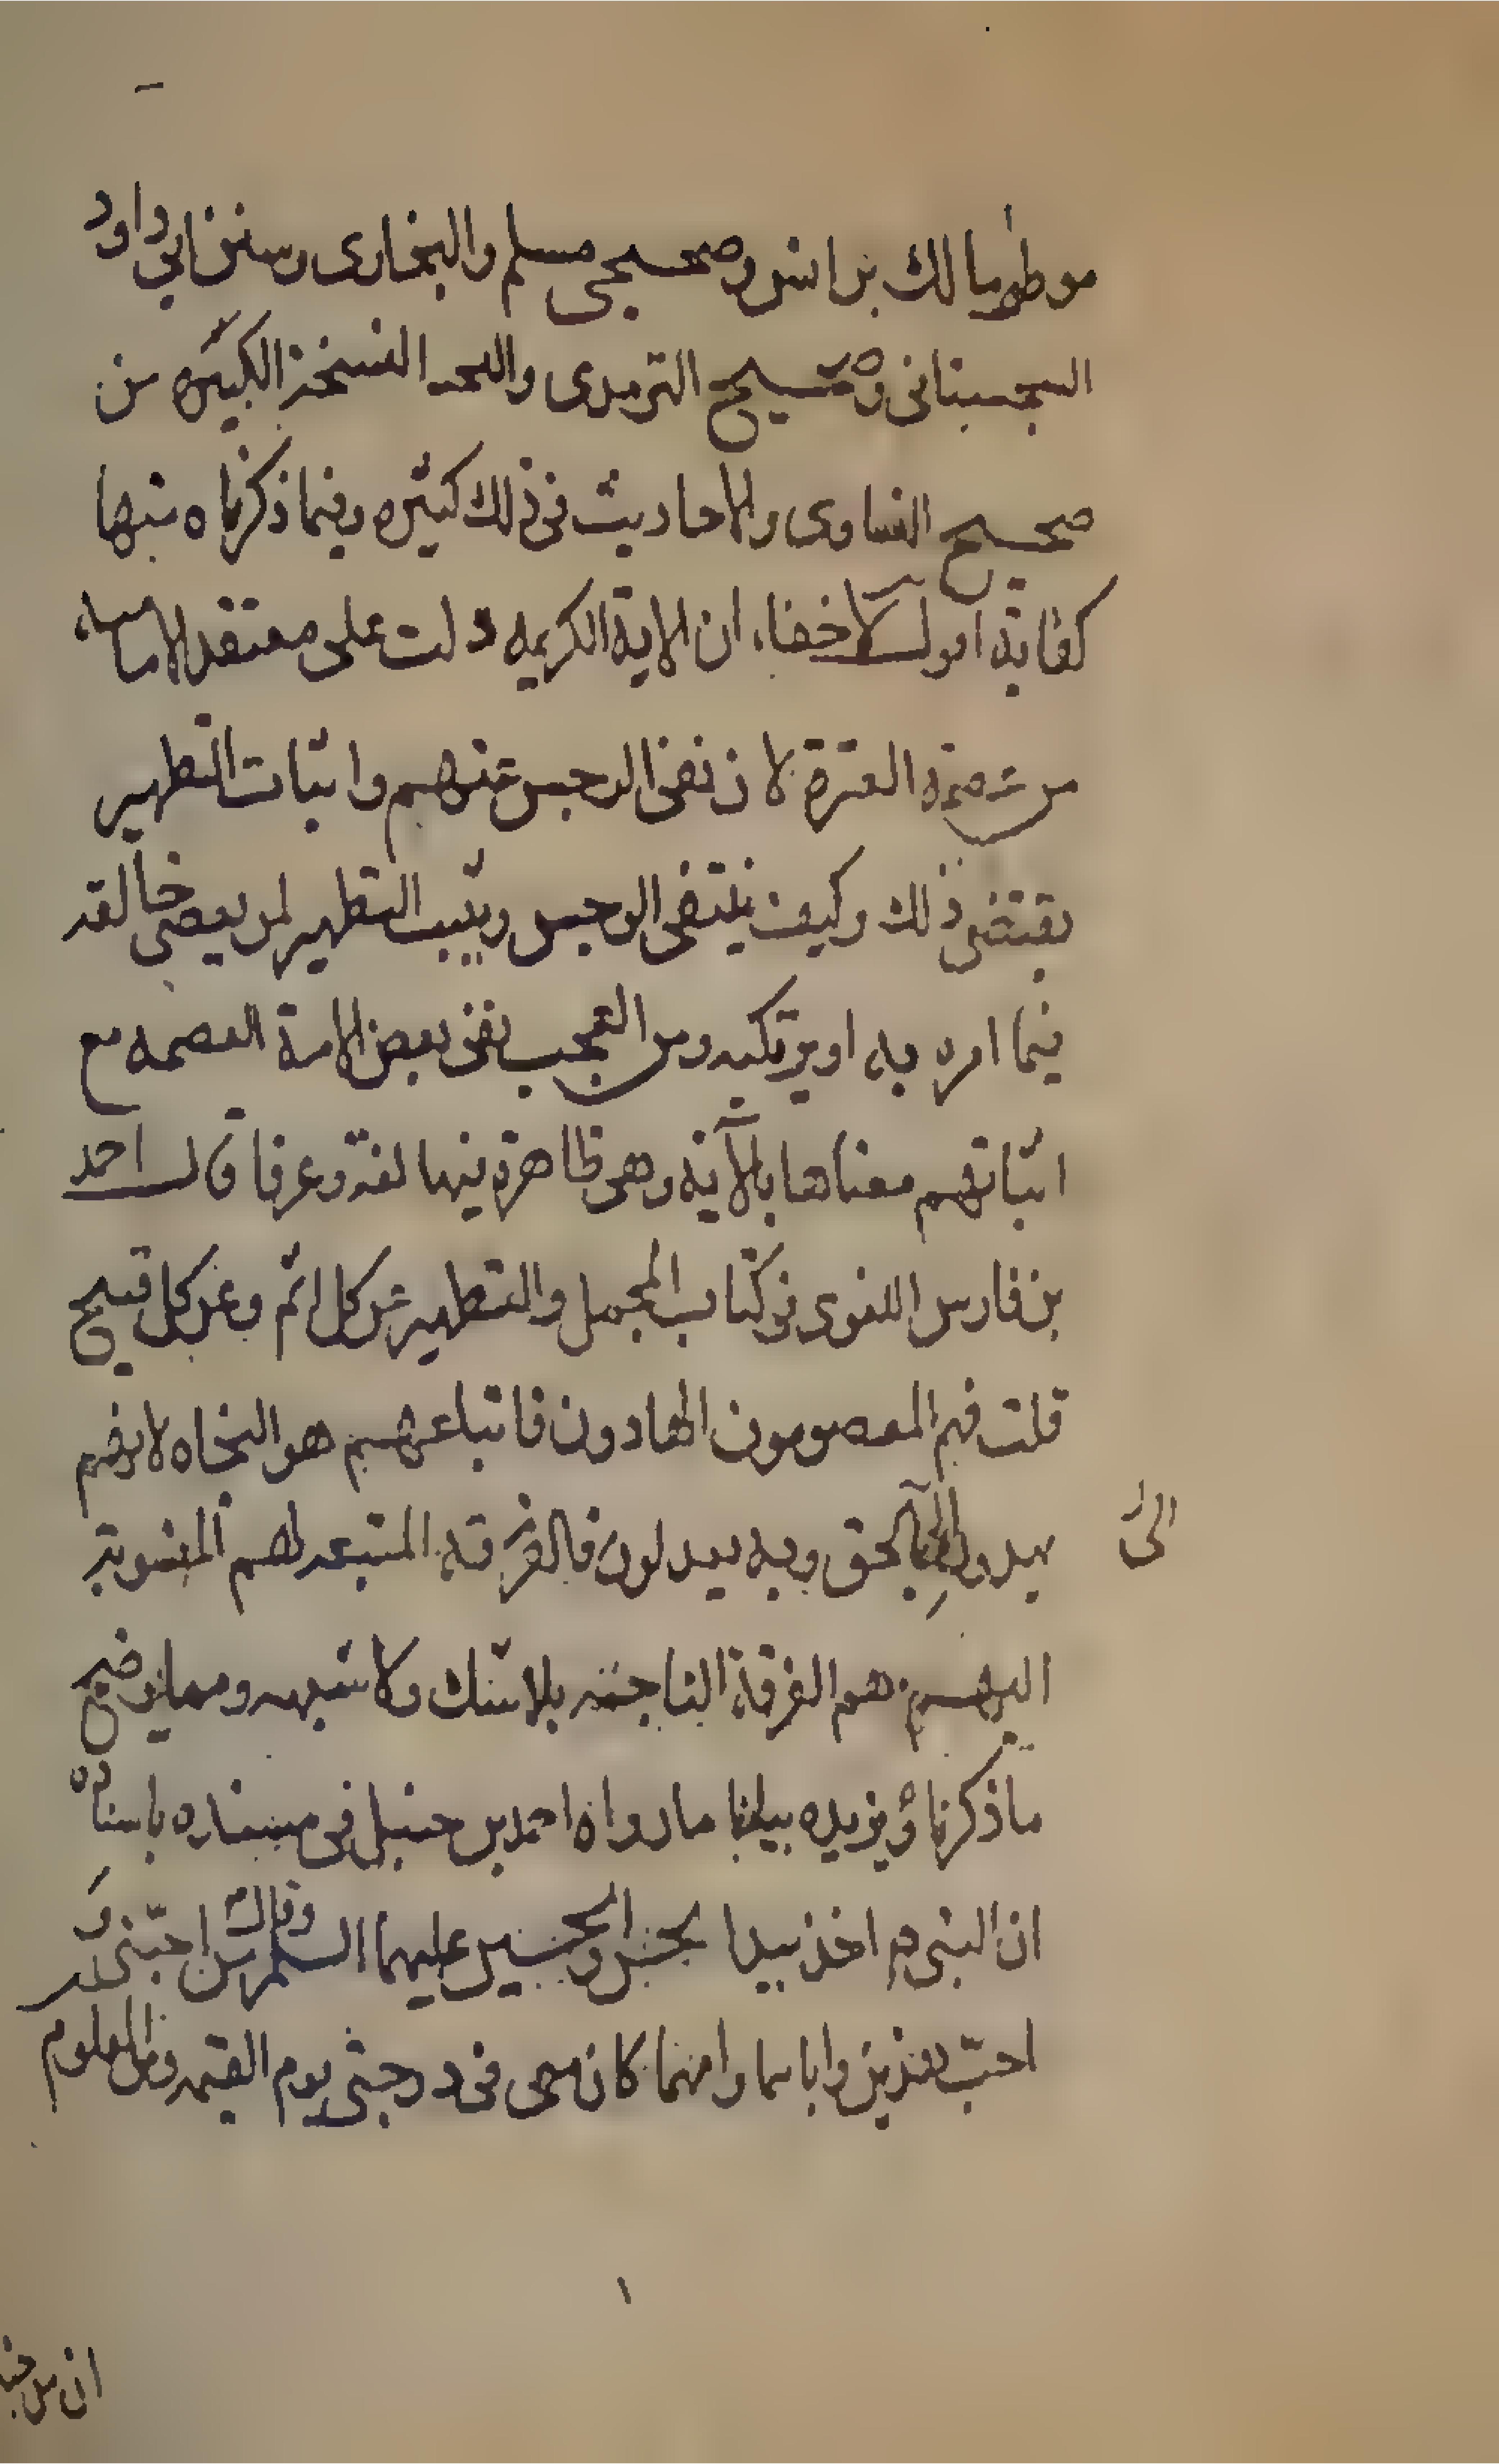 موطأ مالك بن انس وصحيحي مسلم والبخارى وسنن ابي داود
السجستانى وصحيح الترمدى والنسخة الكبيره من
صحيح النساوى والاحاديث في ذلك كثيره وفيما ذكرناه منها
كفاية اقول لا خفاء ان الاية الكريمه دلت على معتقد الاماميه
من عصمة العترة لان نفي الرجس عنهم واثبات التطهير
يقتضى ذلك وكيف ينتفى الرجس ويثبت التطهير لمن يعصى خالقه
فيما امره به او يرتكبه ومن العجب نفي بعض الامة العصمه مع
اثباتهم معناها بالآية وهى ظاهرة فيها لغة وعرفا قال احمد
بن فارس اللغوى في كتاب المجمل والتطهير عن كل اثم وعن كل قبيح
قلت فهم المعصومون الهادون فاتباعهم هو النجاه لانهم
يهدون الى الحق وبه يعدلون فالفرقه المتبعه لهم المنسوبة
الى
اليهم هم الفرقة الناجيه بلا شك ولا شبهه ومما يوضح
ما ذكرنا ويزيده بيانا ما رواه احمد بن حنبل في مسنده باسناده
ان النبي ص اخذ بيد الحسن والحسين عليهما السلم وقال من احبّني و
احبّ هذين واباهما وامهما كان معى فى درجتى يوم القيمه ومن المعلوم
ان من